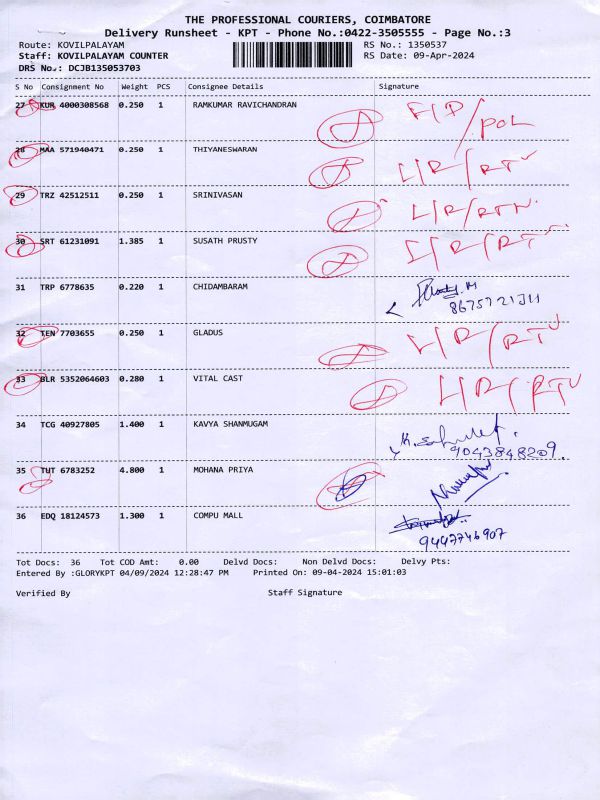 THE PROFESSIONAL COURIERS, COIMBATORE
Delivery Runsheet - KPT - Phone No.:0422-3505555 - Page No.:3
Route: KOVILPALAYAM RS No.: 1350537
Staff: KOVILPALAYAM COUNTER RS Date: 09-Apr-2024
DRS No.: DCJB135053703
S No Consignment No Weight PCS Consignee Details Signature
27 KUR 4000308568 0.250 1 RAMKUMAR RAVICHANDRAN
28 MAA 571940471 0.250 1 THIYANESWARAN
29 TRZ 42512511 0.250 1 SRINIVASAN
30 SRT 61231091 1.385 1 SUSATH PRUSTY
31 TRP 6778635 0.220 1 CHIDAMBARAM
8675721311
32 TEN 7703655 0.250 1 GLADUS
33 BLR 5352064603 0.280 1 VITAL CAST
34 TCG 40927805 1.400 1 KAVYA SHANMUGAM
9043848209.
35 TUT 6783252 4.800 1 MOHANA PRIYA
36 EDQ 18124573 1.300 1 COMPU MALL
9447746907
Tot Docs: 36 Tot COD Amt: 0.00 Delvd Docs: Non Delvd Docs: Delvy Pts:
Entered By :GLORYKPT 04/09/2024 12:28:47 PM Printed On: 09-04-2024 15:01:03
Verified By Staff Signature